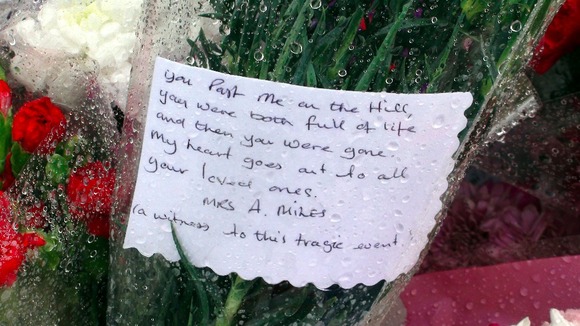 you Past Me on the Hill,
you were both full of life
and then you were gone.
My heart goes out to all
your loved ones.
MRS A. MILES
(a witness to this tragic event)